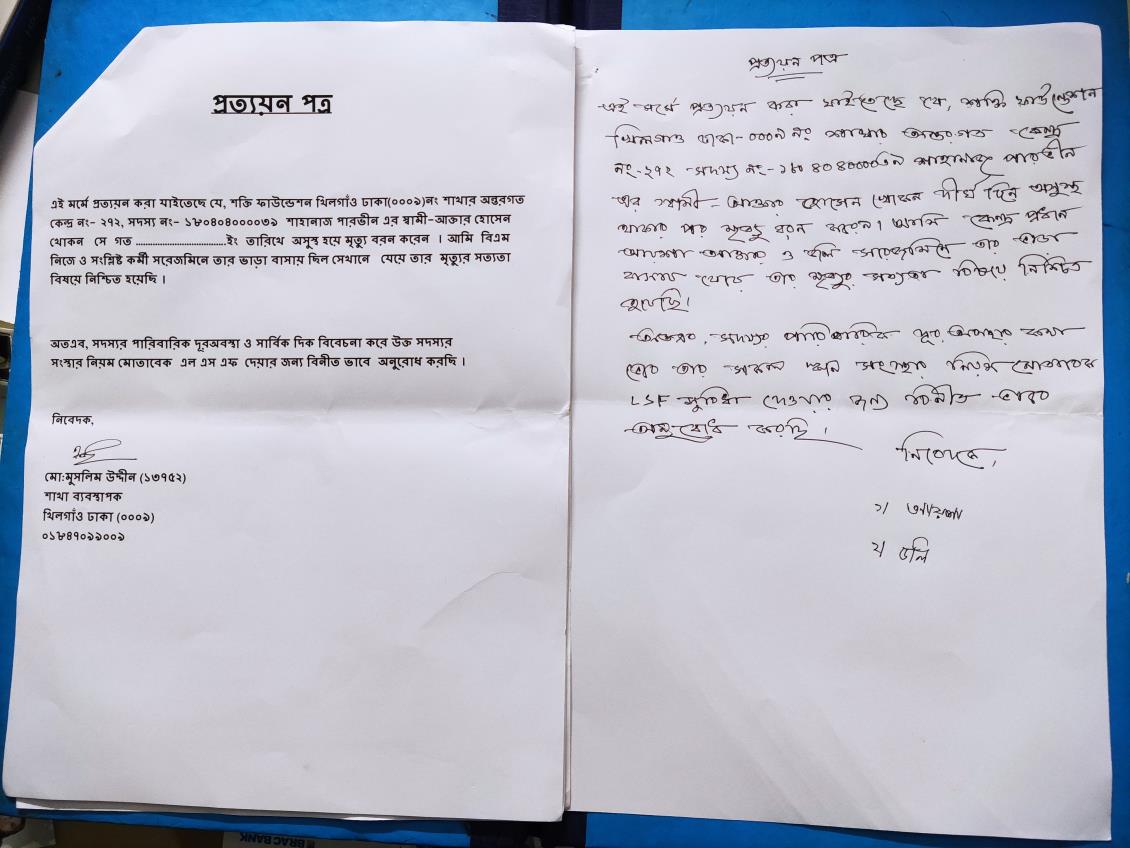 প্রত্যয়ন পত্র
এই মর্মে প্রত্যয়ন করা যাইতেছে যে, শক্তি ফাউন্ডেশন খিলগাঁও ঢাকা(০০০৯)নং শাখার অন্তরগত
কেন্দ্র নং- ২৭২, সদস্য নং- ১৮০৪০৪০০০০৩৯ শাহানাজ পারভীন এর স্বামী-আক্তার হোসেন
খোকন সে গত ..............................ইং তারিখে অসুস্থ হয়ে মৃত্যু বরন করেন । আমি বিএম
নিজে ও সংশ্লিষ্ট কর্মী সরেজমিনে তার ভাড়া বাসায় ছিল সেখানে যেয়ে তার মৃত্যুর সত্যতা
বিষয়ে নিশ্চিত হয়েছি ।
অতএব, সদস্যর পারিবারিক দূরঅবস্থা ও সার্বিক দিক বিবেচনা করে উক্ত সদস্যর
সংস্থার নিয়ম মোতাবেক এল এস এফ দেয়ার জন্য বিনীত ভাবে অনুরোধ করছি ।
নিবেদক,
মো:মুসলিম উদ্দীন (১৩৭৫২)
শাখা ব্যবস্থাপক
খিলগাঁও ঢাকা (০০০৯)
০১৮৪৭০৯৯০০৯
প্রত্যয়ন পত্র
এই মর্মে প্রত্যয়ন করা যাইতেছে যে, শক্তি ফাউন্ডেশন
খিলগাঁও ঢাকা-০০০৯ নং শাখার অন্তরগত কেন্দ্র
নং-২৭২ সদস্য নং-১৮০৪০৪০০০০৩৯ শাহানাজ পারভীন
এর স্বামী- আক্তার হোসেন খোকন দীর্ঘ দিন অসুস্থ
থাকার পর মৃত্যু বরন করেন। আমি কেন্দ্র প্রধান
আয়শা আক্তার ও ডলি সরেজমিনে তার ভাড়া
বাসায় যেয়ে তার মৃত্যুর সত্যতা বিষয়ে নিশ্চিত
হয়েছি।
অতএব, সদস্যর পারিবারিক দূর অবস্থার কথা
ভেবে তার সকল সংস্থার নিয়ম মোতাবেক
LSF সুবিধা দেওয়ার জন্য বিনীত ভাবে
অনুরোধ করছি।
নিবেদক,
১। আয়শা
২। ডলি
BRAC BANK